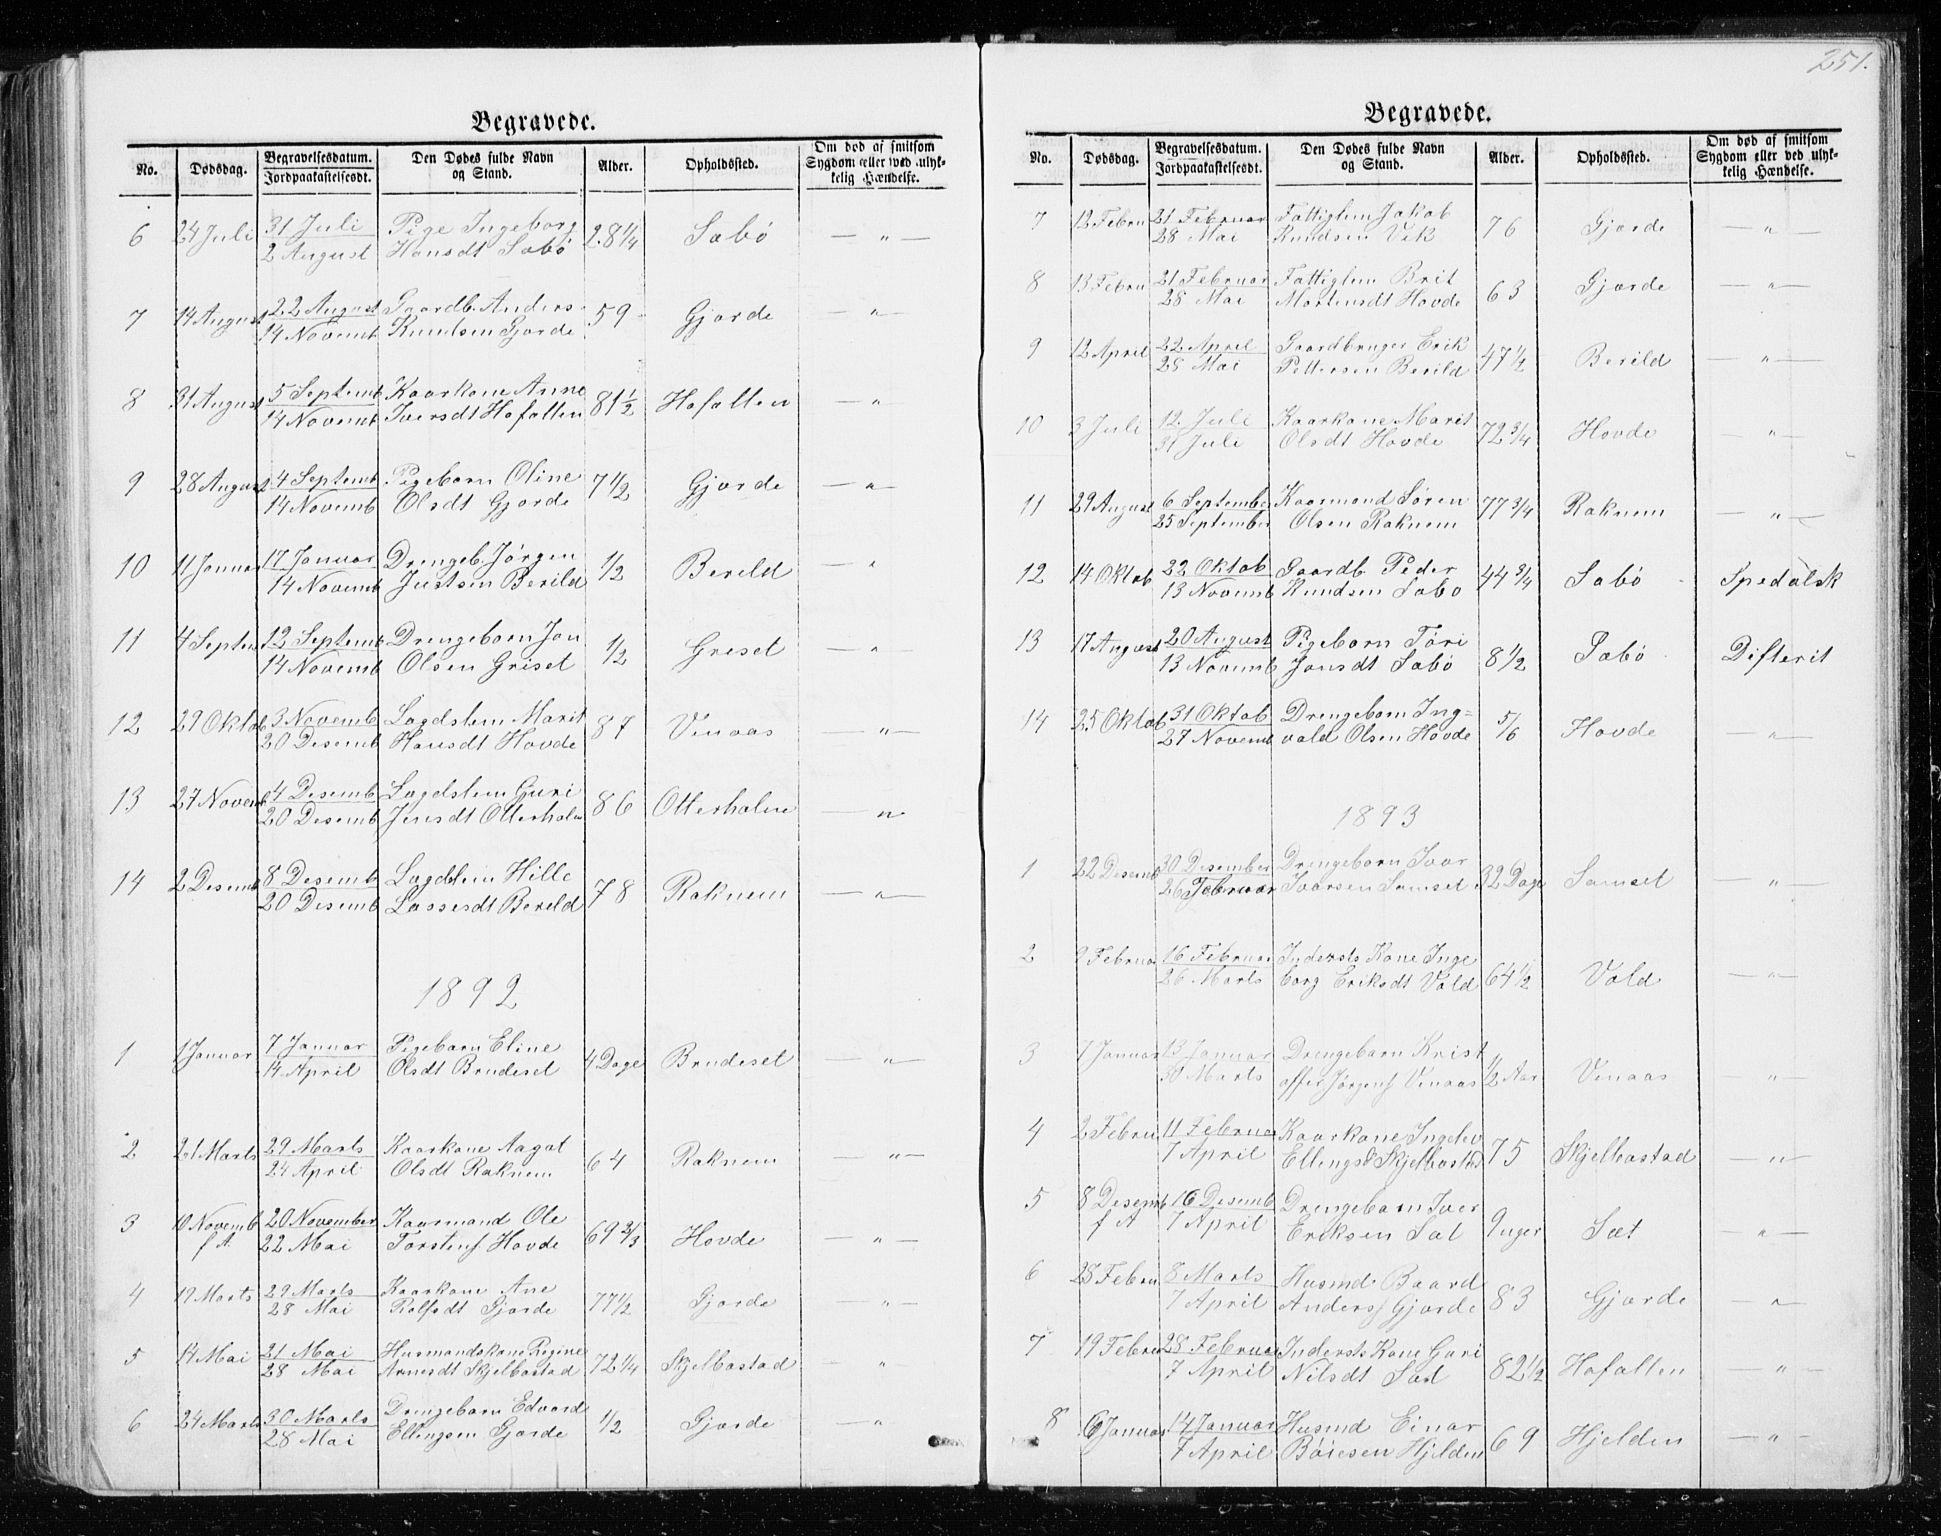 251.
Begravede.
No. Dødsdag. Begravelsesdatum. Jordpaakastelsesdt. Den Dødes fulde Navn og Stand. Alder. Opholdssted. Om død af smitsom Sygdom eller ved ulykkelig Hændelse.
6 24 Juli 31 Juli Pige Ingeborg 28 1/4 Sæbø — " —
2 August Hansdt Sæbø
7 14 August 22 August Gaardb. Anders 59 Gjærde — " —
14 Novemb Knudsen Gjærde
8 31 August 5 Septemb Kaarkone Anne 81 1/2 Hafallen — " —
14 Novemb Iversdt Hafallen
9 28 August 4 Septemb Pigebarn Oline 7 1/2 Gjærde — " —
14 Novemb Olsdt Gjærde
10 11 Januar 17 Januar Drengeb. Jørgen 1/2 Berild — "
14 Novemb Justsen Berild
11 4 Septem 12 Septemb Drengebarn Jon 1/2 Griset — " —
14 Novemb Olsen Griset
12 29 Oktob 3 Novemb Lægdslem Marit 87 Venaas — " —
20 Desemb Hansdt Hovde
13 27 Novemb 4 Desemb Lægdslem Guri 86 Otterholm — " —
20 Desemb Jensdt Otterholm
14 2 Desemb 8 Desemb Lægdslem Hille 78 Raknem — " —
20 Desemb Lassesdt Berild
1892
1 1 Januar 7 Januar Pigebarn Eline 4 Dage Brudeset — " —
14 April Olsdt Brudeset
2 21 Marts 29 Marts Kaarkone Aagot 64 Raknem — " —
24 April Olsdt Raknem
3 10 Novemb 20 November Kaarmand Ole 69 2/3 Hovde — " —
f. A. 22 Mai Torstens Hovde
4 19 Marts 29 Marts Kaarkone Ane 77 1/2 Gjærde — " —
28 Mai Rolfsdt Gjærde
5 14 Mai 21 Mai Husmandskone Regine 72 1/4 Skjelbostad — "
28 Mai Arnesdt Skjelbostad
6 24 Marts 30 Marts Drengebarn Edvard 1/2 Gjærde — " —
28 Mai Ellingsen Gjærde
Begravede.
No. Dødsdag. Begravelsesdatum. Jordpaakastelsesdt. Den Dødes fulde Navn og Stand. Alder. Opholdssted. Om død af smitsom Sygdom eller ved ulykkelig Hændelse.
7 12 Febru 21 Februar Fattiglem Jakob 76 Gjærde — " —
28 Mai Knudsen Vik
8 13 Febru 21 Februar Fattiglem Brit 63 Gjærde — " —
28 Mai Martensdt Hovde
9 12 April 22 April Gaardbruger Erik 47 1/2 Berild — " —
28 Mai Pettersen Berild
10 3 Juli 12 Juli Kaarkone Marit 72 3/4 Hovde — " —
31 Juli Olsdt Hovde
11 29 August 6 September Kaarmand Søren 77 3/4 Raknem — " —
25 September Olsen Raknem
12 14 Oktob 22 Oktob Gaardb Peder 44 3/4 Sæbø Spedalsk
13 Novemb Knudsen Sæbø
13 17 August 20 August Pigebarn Tøri 8 1/2 Sæbø Difterit
13 Novemb Jonsdt Sæbø
14 25 Oktob 31 Oktob Drengebarn Ing= 5/6 Hovde — " —
27 Novemb vald Olsen Hovde
1893
1 22 Desemb 30 Desember Drengebarn Ivar 32 Dage Samset — " —
26 Februar Ivarsen Samset
2 9 Februa 16 Februar Inderstskone Inge 64 1/2 Vold — " —
26 Marts borg Eriksdt Vold
3 7 Januar 13 Januar Drengebarn Krist 1/2 Aar Venaas — " —
30 Marts offer Jørgens Venaas
4 2 Febru 11 Februar Kaarkone Ingelev 75 Skjelbostad — " —
7 April Ellingsd Skjelbostad
5 8 Desemb 16 Desemb Drengebarn Iver 9 uger Sæt — " —
f A 7 April Eriksen Sæt
6 28 Febru 8 Marts Husmd Baard 83 Gjærde — " —
7 April Anders Gjærde
7 19 Febru 28 Februar Inderstskone Guri 82 1/2 Hafallen — " —
7 April Nilsdt Sæt
8 6 Januar 14 Januar Husmd Einar 69 Hjelden — " —
7 April Bøiesen Hjelden